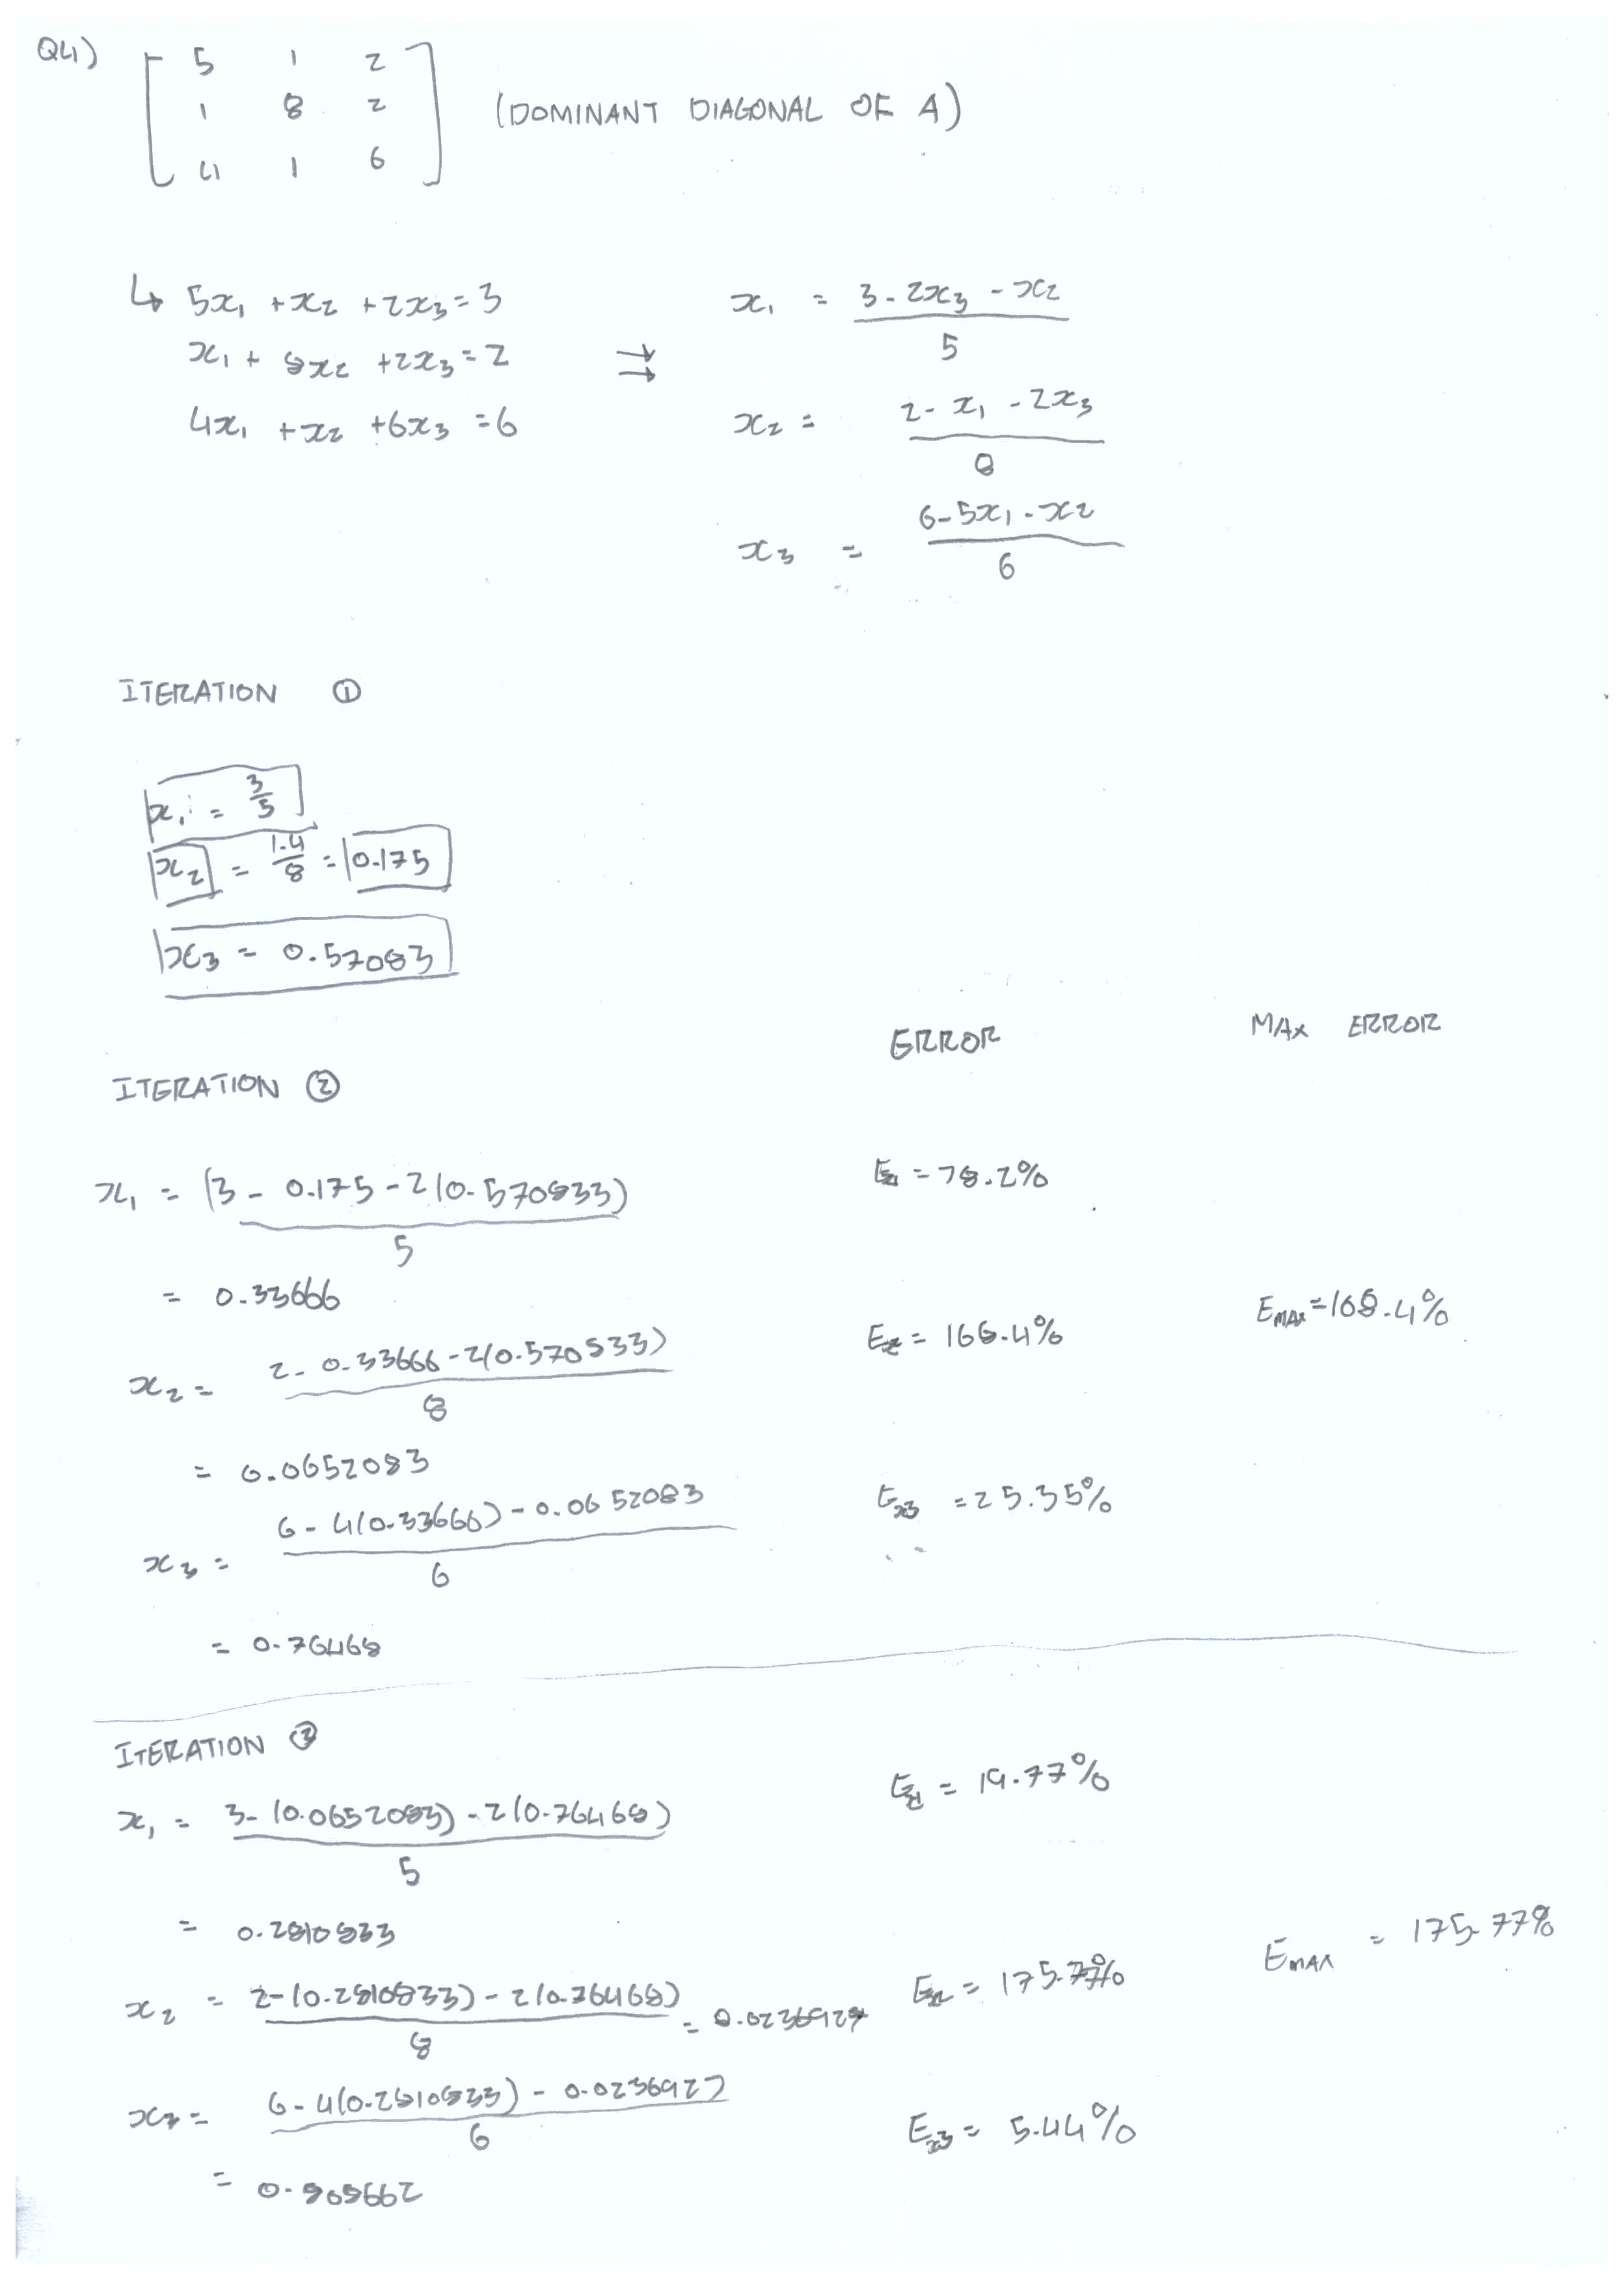 Q4)
5 1 2
1 8 2
4 1 6
(DOMINANT DIAGONAL OF A)
↳ 5x₁ + x₂ + 2x₃ = 3
x₁ + 8x₂ + 2x₃ = 2
4x₁ + x₂ + 6x₃ = 6
⇒
x₁ = (3 - 2x₃ - x₂) / 5
x₂ = (2 - x₁ - 2x₃) / 8
x₃ = (6 - 5x₁ - x₂) / 6
ITERATION ①
x₁ = 3/5
x₂ = 1.4/8 = 0.175
x₃ = 0.57083
ERROR MAX ERROR
ITERATION ②
x₁ = (3 - 0.175 - 2(0.570833) / 5
= 0.33666
E₁ = 78.2%
x₂ = 2 - 0.33666 - 2(0.570833) / 8
= 0.0652083
E₂ = 168.4%
E MAX = 168.4%
x₃ = 6 - 4(0.33666) - 0.0652083 / 6
= 0.76468
Ex3 = 25.35%
ITERATION ③
x₁ = 3 - (0.0652083) - 2(0.76468) / 5
= 0.2810833
E₁ = 19.77%
x₂ = 2 - (0.2810833) - 2(0.76468) / 8 = 0.0236927
E₂ = 175.77%
E MAX = 175.77%
x₃ = 6 - 4(0.2810833) - 0.0236927 / 6
= 0.808662
Ex3 = 5.44%